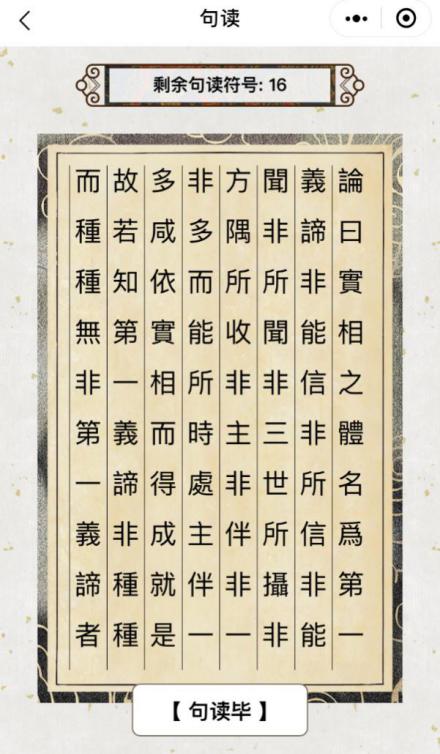 句读
剩余句读符号: 16
論曰實相之體名爲第一
義諦非能信非所信非能
聞非所聞非三世所攝非
方隅所收非主非伴非一
非多而能所時處主伴一
多咸依實相而得成就是
故若知第一義諦非種種
而種種無非第一義諦者
【 句读毕 】